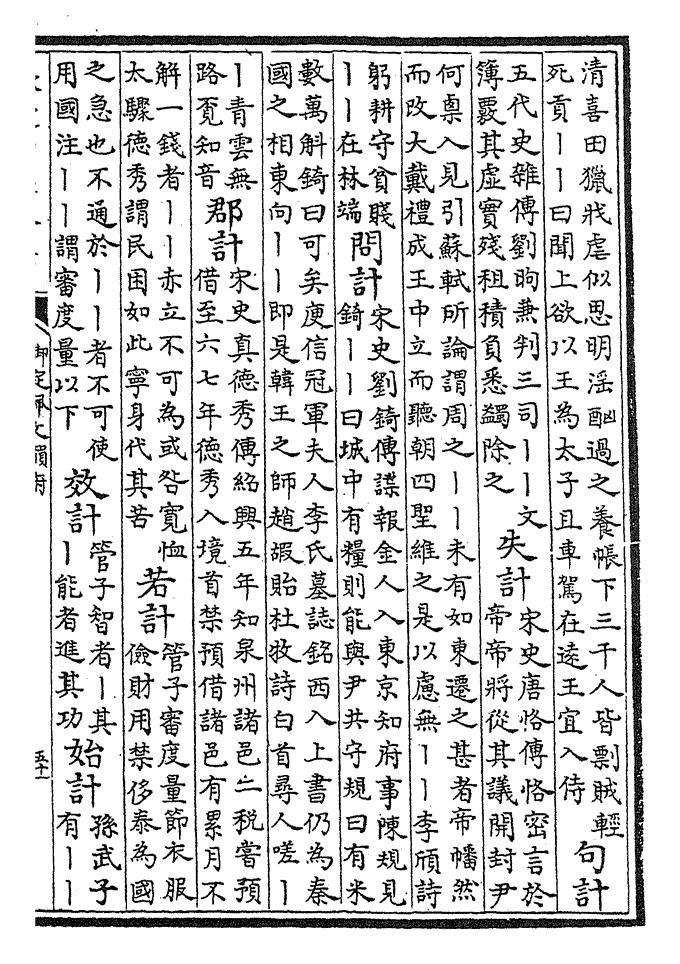 清喜田獵戕虐似思明淫酗過之養帳下三千人皆剽賊輕
死貢丨丨曰聞上欲以王為太子且車駕在遠王宜入侍
句計
五代史雜傳劉昫兼判三司丨丨文
簿覈其虛實殘租積負悉蠲除之
失計
宋史唐恪傳恪密言於
帝帝將從其議開封尹
何㮚入見引蘇軾所論謂周之丨丨未有如東遷之甚者帝幡然
而改大戴禮成王中立而聽朝四聖維之是以慮無丨丨李頎詩
躬耕守貧賤
丨丨在林端
問計
宋史劉錡傳諜報金人入東京知府事陳規見
錡丨丨曰城中有糧則能與尹共守規曰有米
數萬斛錡曰可矣庾信冠軍夫人李氏墓誌銘西入上書仍為秦
國之相東向丨丨即是韓王之師趙嘏貽杜牧詩白首尋人嗟丨
丨青雲無
路覓知音
郡計
宋史真德秀傳紹興五年知泉州諸邑二稅嘗預
借至六七年德秀入境首禁預借諸邑有累月不
解一錢者丨丨赤立不可為或咎寬恤
太驟德秀謂民困如此寧身代其苦
若計
管子審度量節衣服
儉財用禁侈泰為國
之急也不通於丨丨者不可使
用國注丨丨謂審度量以下
效計
管子智者丨其
丨能者進其功
始計
孫武子
有丨丨
御定佩文韻府